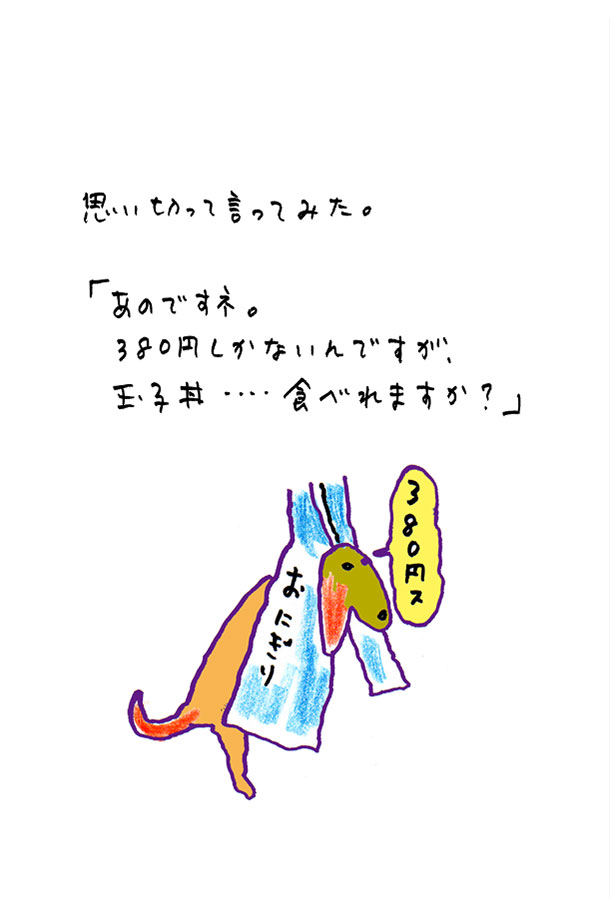 思い切って言ってみた。
「あのですネ。
380円しかないんですが、
玉子丼‥‥食べれますか?」
380円ス
おにぎり